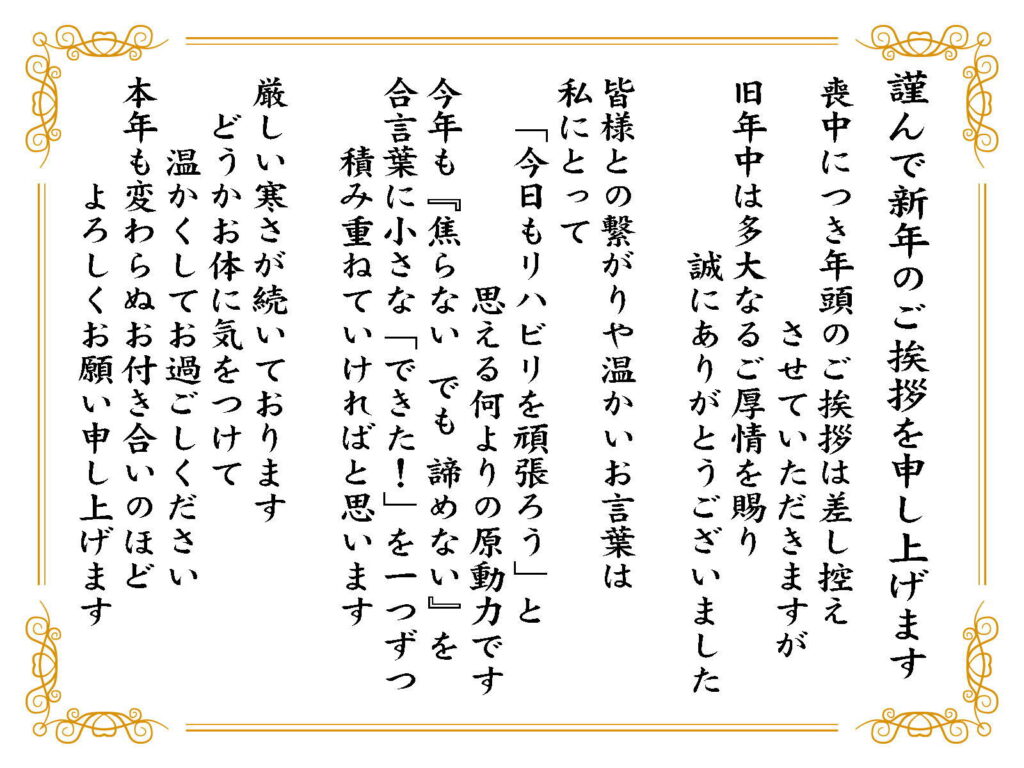 謹んで新年のご挨拶を申し上げます
喪中につき年頭のご挨拶は差し控え
させていただきますが
旧年中は多大なるご厚情を賜り
誠にありがとうございました
皆様との繋がりや温かいお言葉は
私にとって
「今日もリハビリを頑張ろう」と
思える何よりの原動力です
今年も『焦らない でも 諦めない』を
合言葉に小さな「できた！」を一つずつ
積み重ねていければと思います
厳しい寒さが続いております
どうかお体に気をつけて
温かくしてお過ごしください
本年も変わらぬお付き合いのほど
よろしくお願い申し上げます